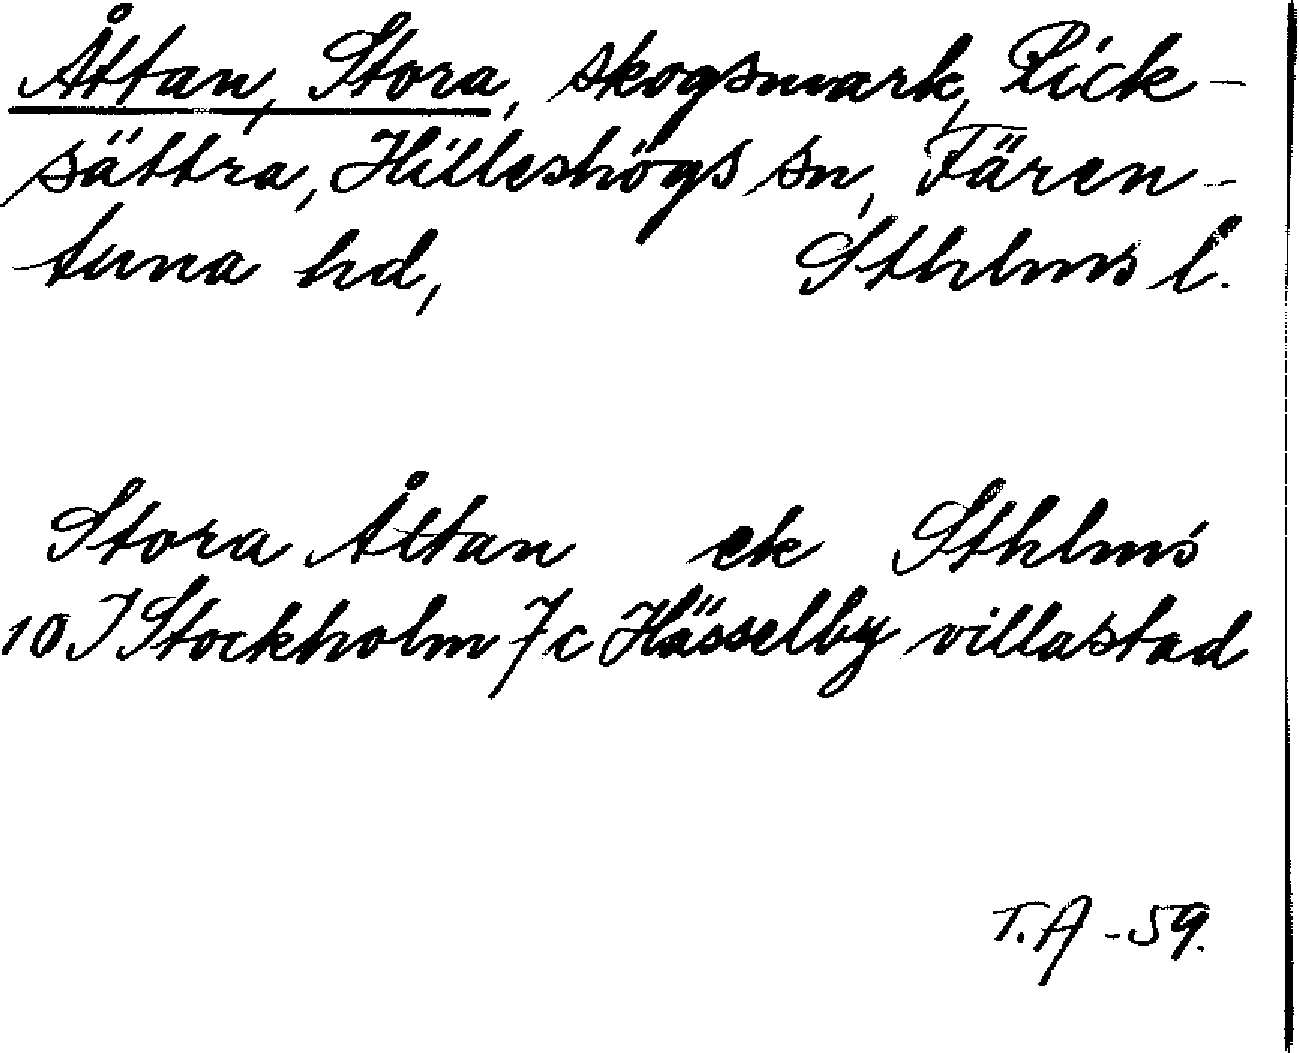 Åttan, Stora, skogsmark, Rick-
sättra, Hilleshögs sn, Fären-
tuna hd, Sthlms l.
Stora Åttan ek Sthlms
10 I Stockholm 7 c Hässelby villastad
T.A -59.